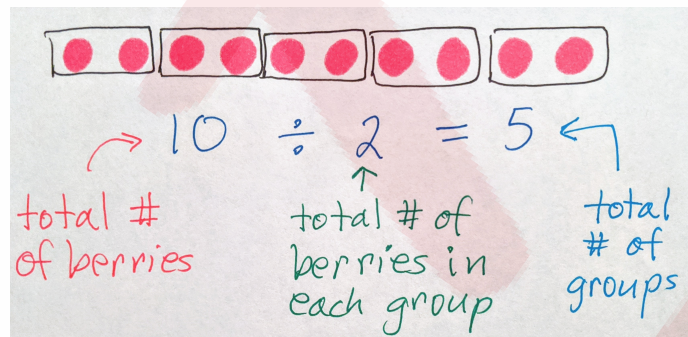 10 ÷ 2 = 5
total #
of berries
total # of
berries in
each group
total
# of
groups